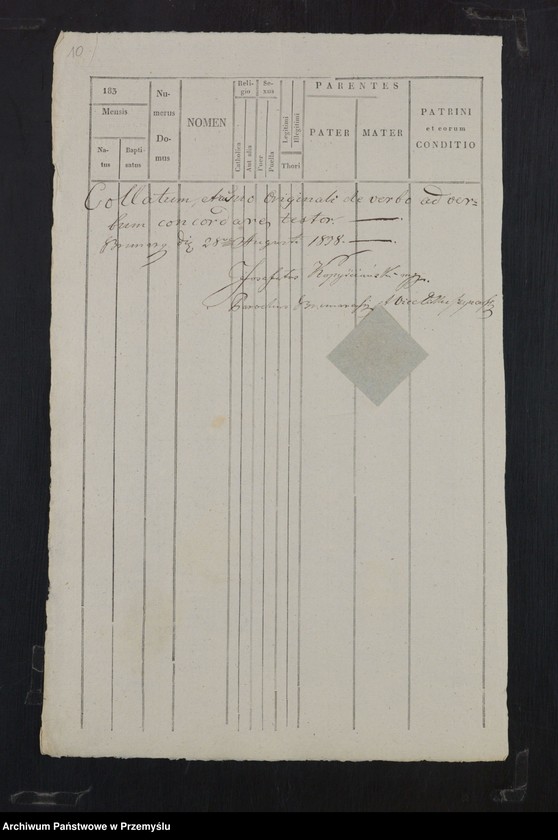 10
183
Mensis
Na-
tus
Bapti-
satus
Nu-
merus
Do-
mus
NOMEN
Reli-
gio
Catholica
Aut alia
Se-
xus
Puer
Puella
Legitimi
Illegitimi
Thori
PARENTES
PATER
MATER
PATRINI
et eorum
CONDITIO
Collatum, Originali de verbo ad ver-
bum concordare, testor.
die 28 Augusti 1838.
Josephatus
Parochus et Vice
Archiwum Państwowe w Przemyślu